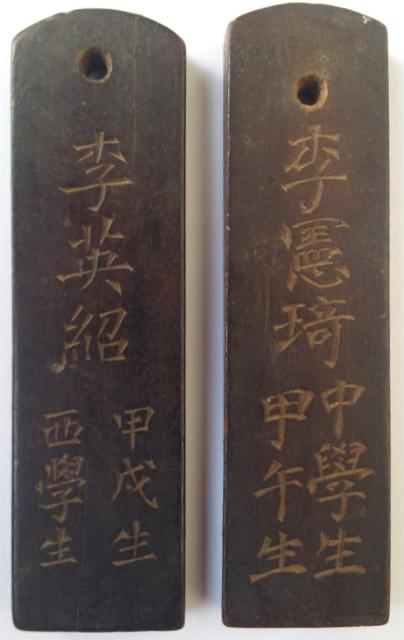 李憲琦
中學生
甲午生
李英紹
甲戌生
西學生